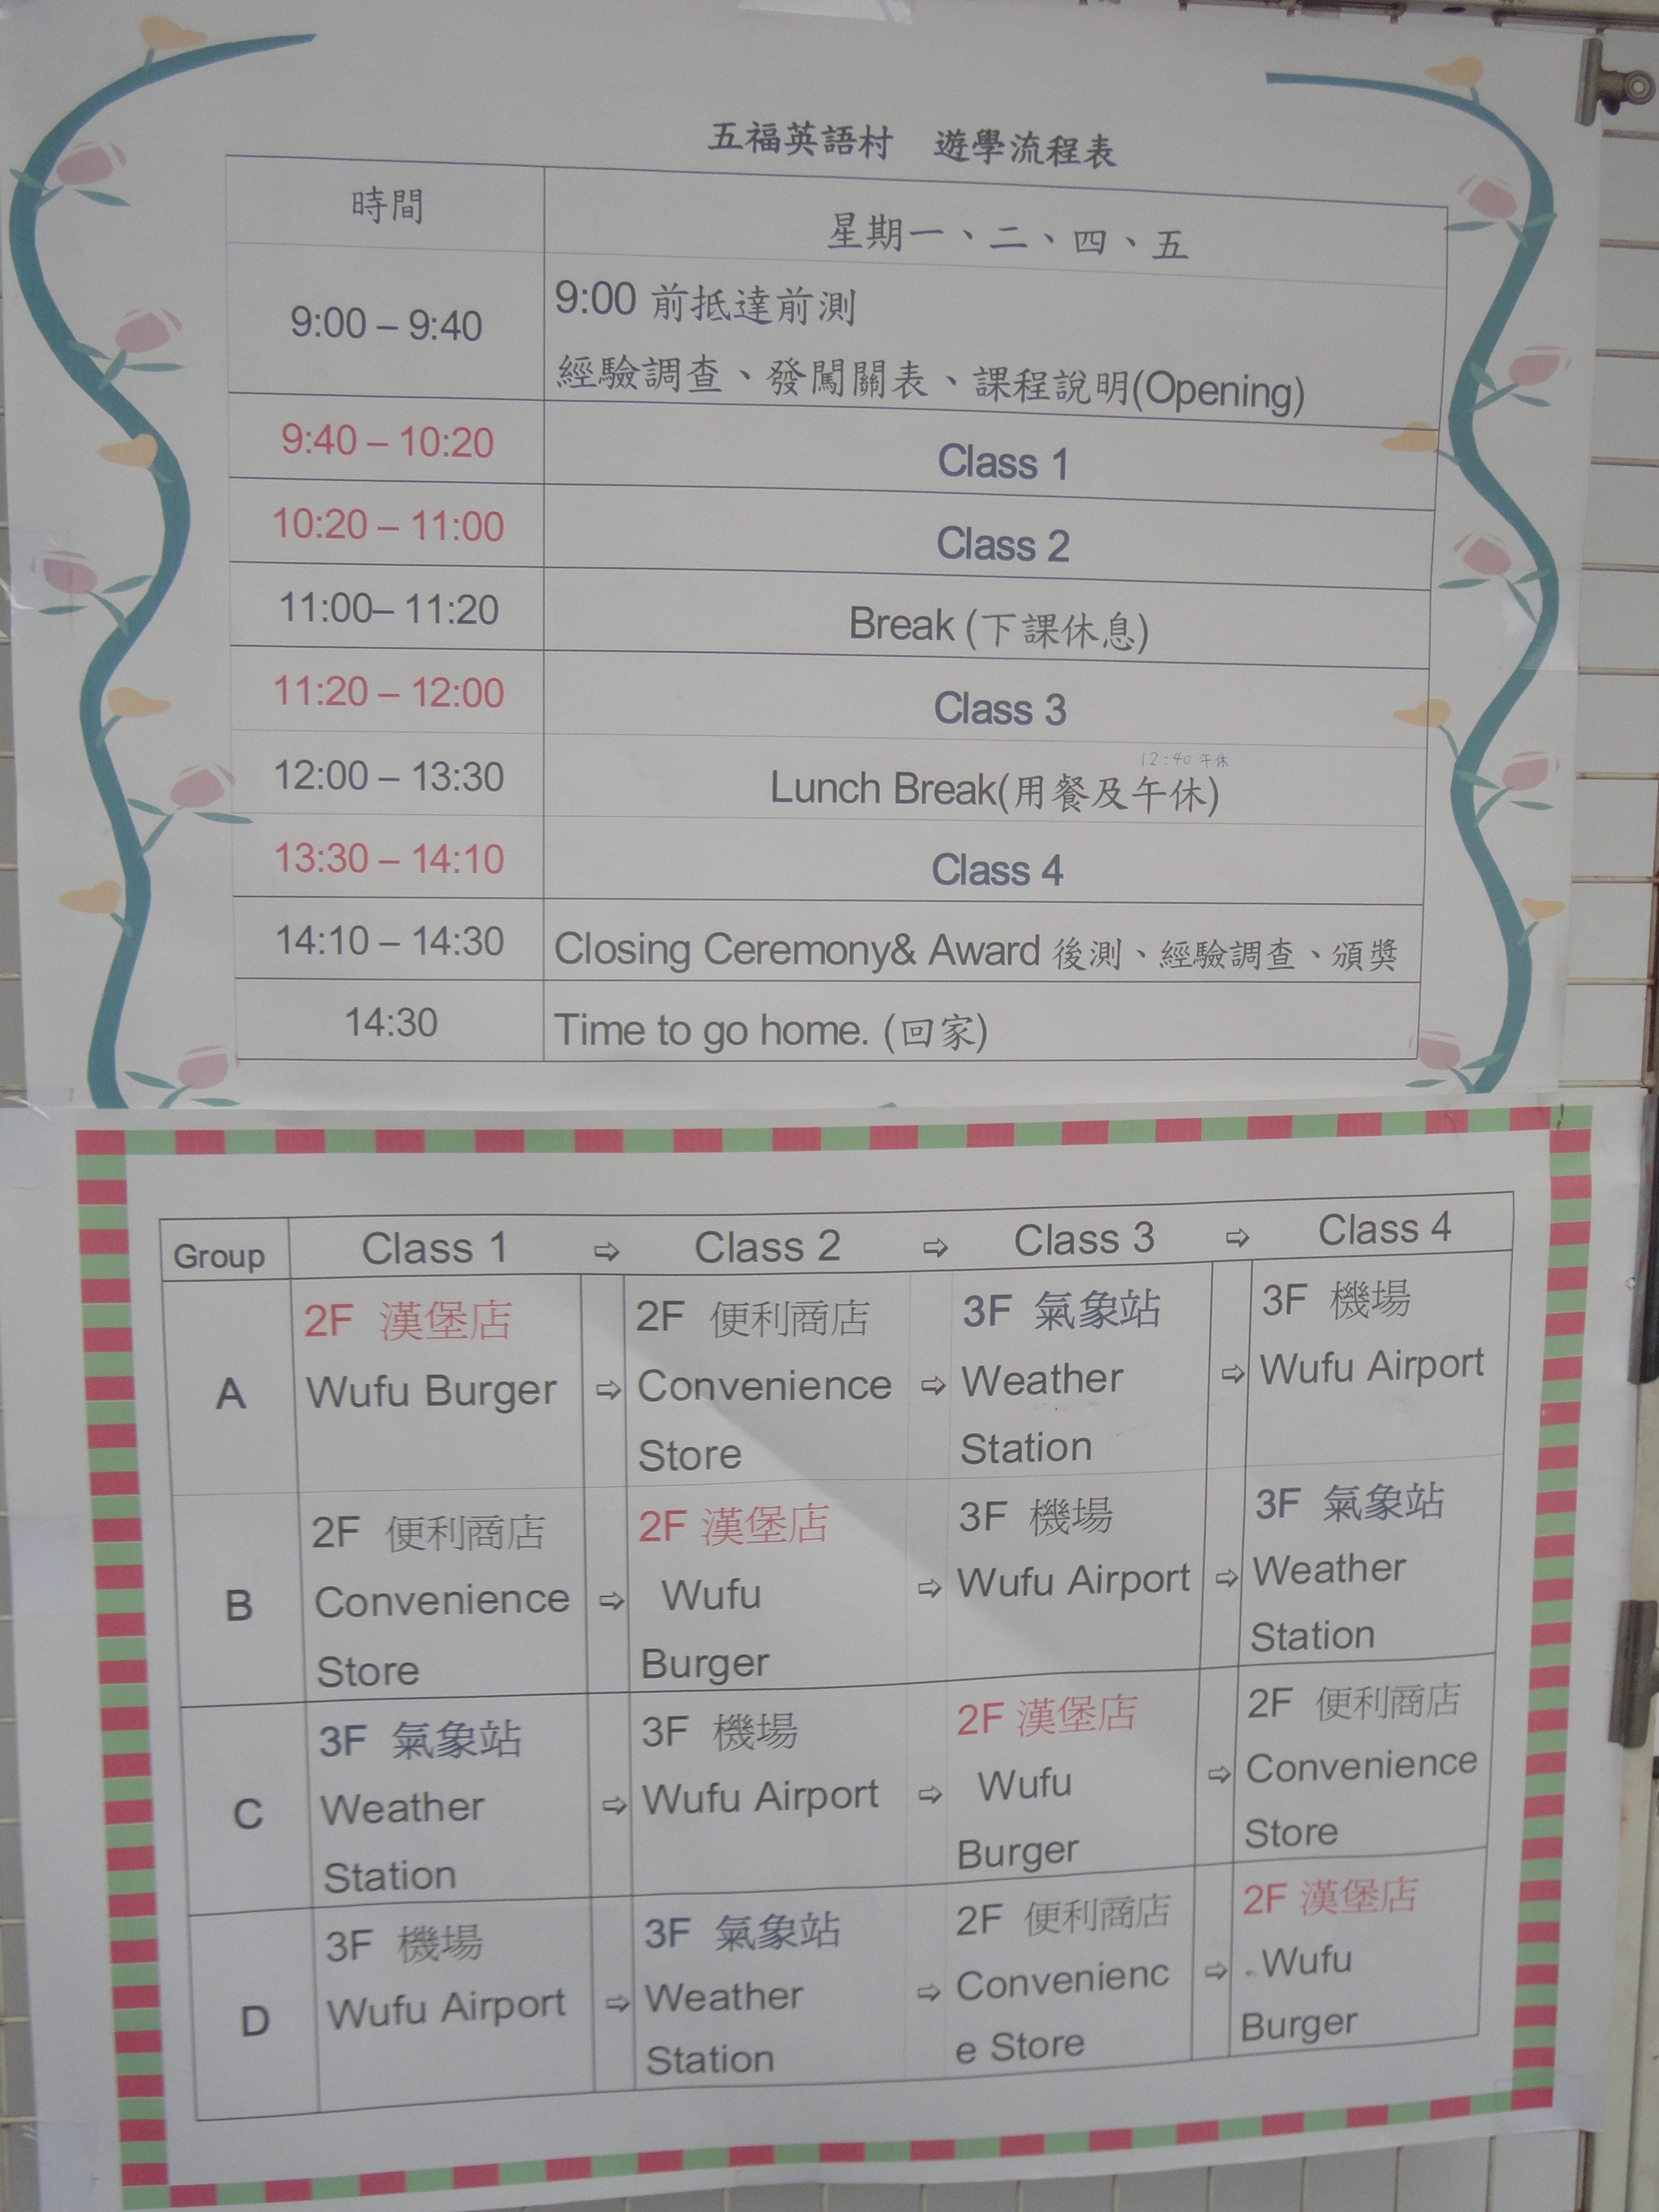 五福英語村　遊學流程表
時間 星期一、二、四、五
9:00 – 9:40 9:00 前抵達前測
經驗調查、發闖關表、課程說明(Opening)
9:40 – 10:20 Class 1
10:20 – 11:00 Class 2
11:00– 11:20 Break (下課休息)
11:20 – 12:00 Class 3
12:40 午休
12:00 – 13:30 Lunch Break(用餐及午休)
13:30 – 14:10 Class 4
14:10 – 14:30 Closing Ceremony& Award 後測、經驗調查、頒獎
14:30 Time to go home. (回家)
Group Class 1 ⇨ Class 2 ⇨ Class 3 ⇨ Class 4
A
2F 漢堡店
Wufu Burger
⇨
2F 便利商店
Convenience
Store
⇨
3F 氣象站
Weather
Station
⇨
3F 機場
Wufu Airport
B
2F 便利商店
Convenience
Store
⇨
2F 漢堡店
Wufu
Burger
⇨
3F 機場
Wufu Airport
⇨
3F 氣象站
Weather
Station
C
3F 氣象站
Weather
Station
⇨
3F 機場
Wufu Airport
⇨
2F 漢堡店
Wufu
Burger
⇨
2F 便利商店
Convenience
Store
D
3F 機場
Wufu Airport
⇨
3F 氣象站
Weather
Station
⇨
2F 便利商店
Convenienc
e Store
⇨
2F 漢堡店
Wufu
Burger